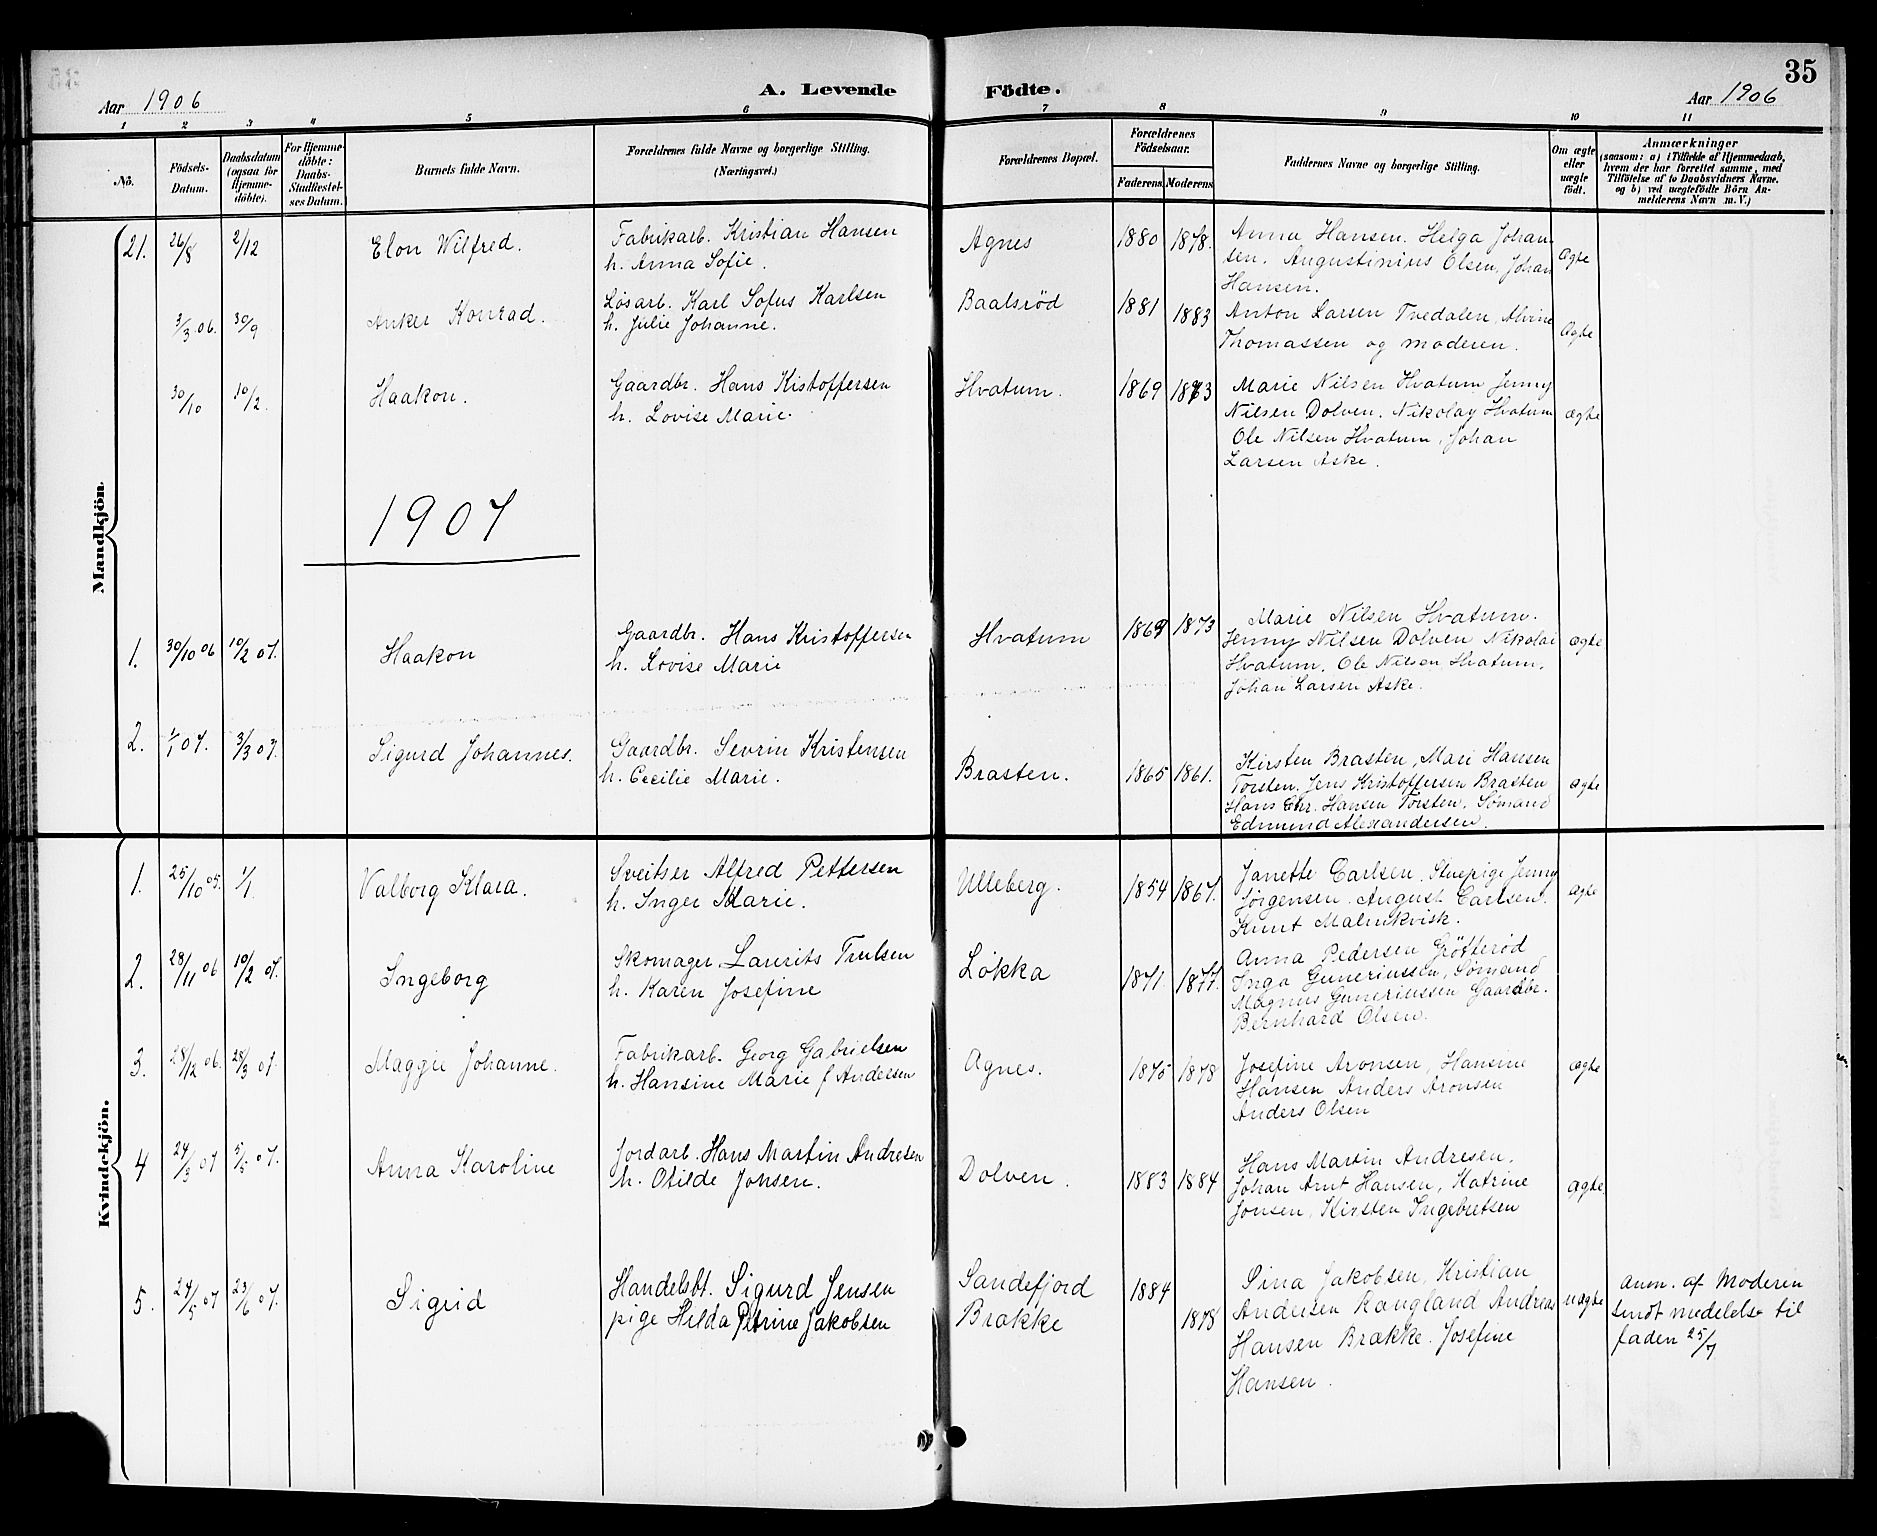 35
Aar 1906
A. Levende Födte.
Aar 1906
1 2 3 4 5 6 7 8 9 10 11
No.
Födsels-
Datum.
Daabsdatum
(ogsaa for
Hjemme-
döbte).
For Hjemme-
döbte:
Daabs-
Stadfæstel-
ses Datum.
Barnets fulde Navn.
Forældrenes fulde Navne og borgerlige Stilling.
(Næringsvei.)
Forældrenes Bopæl.
Forældrenes
Födselsaar.
Faderens.
Moderens.
Faddernes Navne og borgerlige Stilling.
Om ægte
eller
uægte
födt.
Anmærkninger
(saasom: a) i Tilfælde af Hjemmedaab,
hvem der har forrettet samme, med
Tilföielse af to Daabsvidners Navne.
og b) ved uægtefödte Börn An-
melderens Navn m. V.)
Mandkjön.
21. 26/8 2/12 Elon Wilfred.
Fabrikarb. Kristian Hansen
h. Anna Sofie.
Agnes 1880 1878.
Anna Hansen. Helga Johan
sen. Augustinius Olsen, Johan
Hansen.
Ægte
3/3 06. 30/9 Anker Konrad.
Løsarb. Karl Sofus Karlsen
h. Julie Johanne.
Baalsrød 1881 1883
Anton Larsen Tvedalen, Alvine
Thomassen og moderen.
Ægte
30/10 10/2. Haakon.
Gaardbr. Hans Kistoffersen
h. Lovise Marie.
Hvatum. 1869 1873
Marie Nilsen Hvatum Jenny
Nilsen Dolven. Nikolay Hvatum
Ole Nilsen Hvatum, Johan
Larsen Aske.
ægte
1907
1. 30/10 06 10/2 07. Haakon
Gaardbr. Hans Kristoffersen
h. Lovise Marie
Hvatum 1869 1873
Marie Nilsen Hvatum.
Jenny Nilsen Dolven Nikolai
Hvatum. Ole Nilsen Hvatum.
Johan Larsen Aske.
ægte
2. 1/1 07. 3/3 07. Sigurd Johannes.
Gaardbr. Sevrin Kristensen
h. Cecilie Marie.
Brasten. 1865 1861.
Kirsten Brasten, Mari Hansen
Torsten. Jens Kristoffersen Brasten
Hans Chr. Hansen Torsten. Sømand
Edmund Alexandersen.
ægte
Kvindekjön.
1. 25/10 05. 1/1. Valborg Klara.
Sveitser Alfred Pettersen
h. Inger Marie.
Ulleberg. 1854 1867.
Janette Carlsen. Stuepige Jenny
Jørgensen. August Carlsen.
Knut Malmkvisk.
ægte
2. 28/11 06 10/2 07. Ingeborg
Skomager Laurits Trulsen
h. Karen Josefine
Løkka 1871. 1877.
Anna Pedersen Grøtterød
Inga Guneriussen, Sømand
Magnus Guneriussen Gaardbr.
Bernhard Olsen.
3. 28/12 06. 28/3 07. Maggie Johanne.
Fabrikarb. Georg Gabrielsen
h. Hansine Marie f Andersen
Agnes. 1875 1878
Josefine Aronsen, Hansine
Hansen Anders Aronsen
Anders Olsen
ægte
4 24/3 07 5/5 07. Anna Karoline
Jordarb. Hans Martin Andresen
h. Otilde Jonsen.
Dolven. 1883 1884
Hans Martin Andresen.
Johan Arnt Hansen, Katrine
Jonsen, Kirsten Ingebretsen
ægte.
5. 24/5 07 23/6 07. Sigrid
Handelsbt. Sigurd Jensen
pige Hilda Petrine Jakobsen
Sandefjord
Brække
1884 1878
Sina Jakobsen, Kristian
Andersen Rangland Andreas
Hansen Brække. Josefine
Hansen.
uægte
Anm. af Moderen
sendt medelelse til
faden 25/7